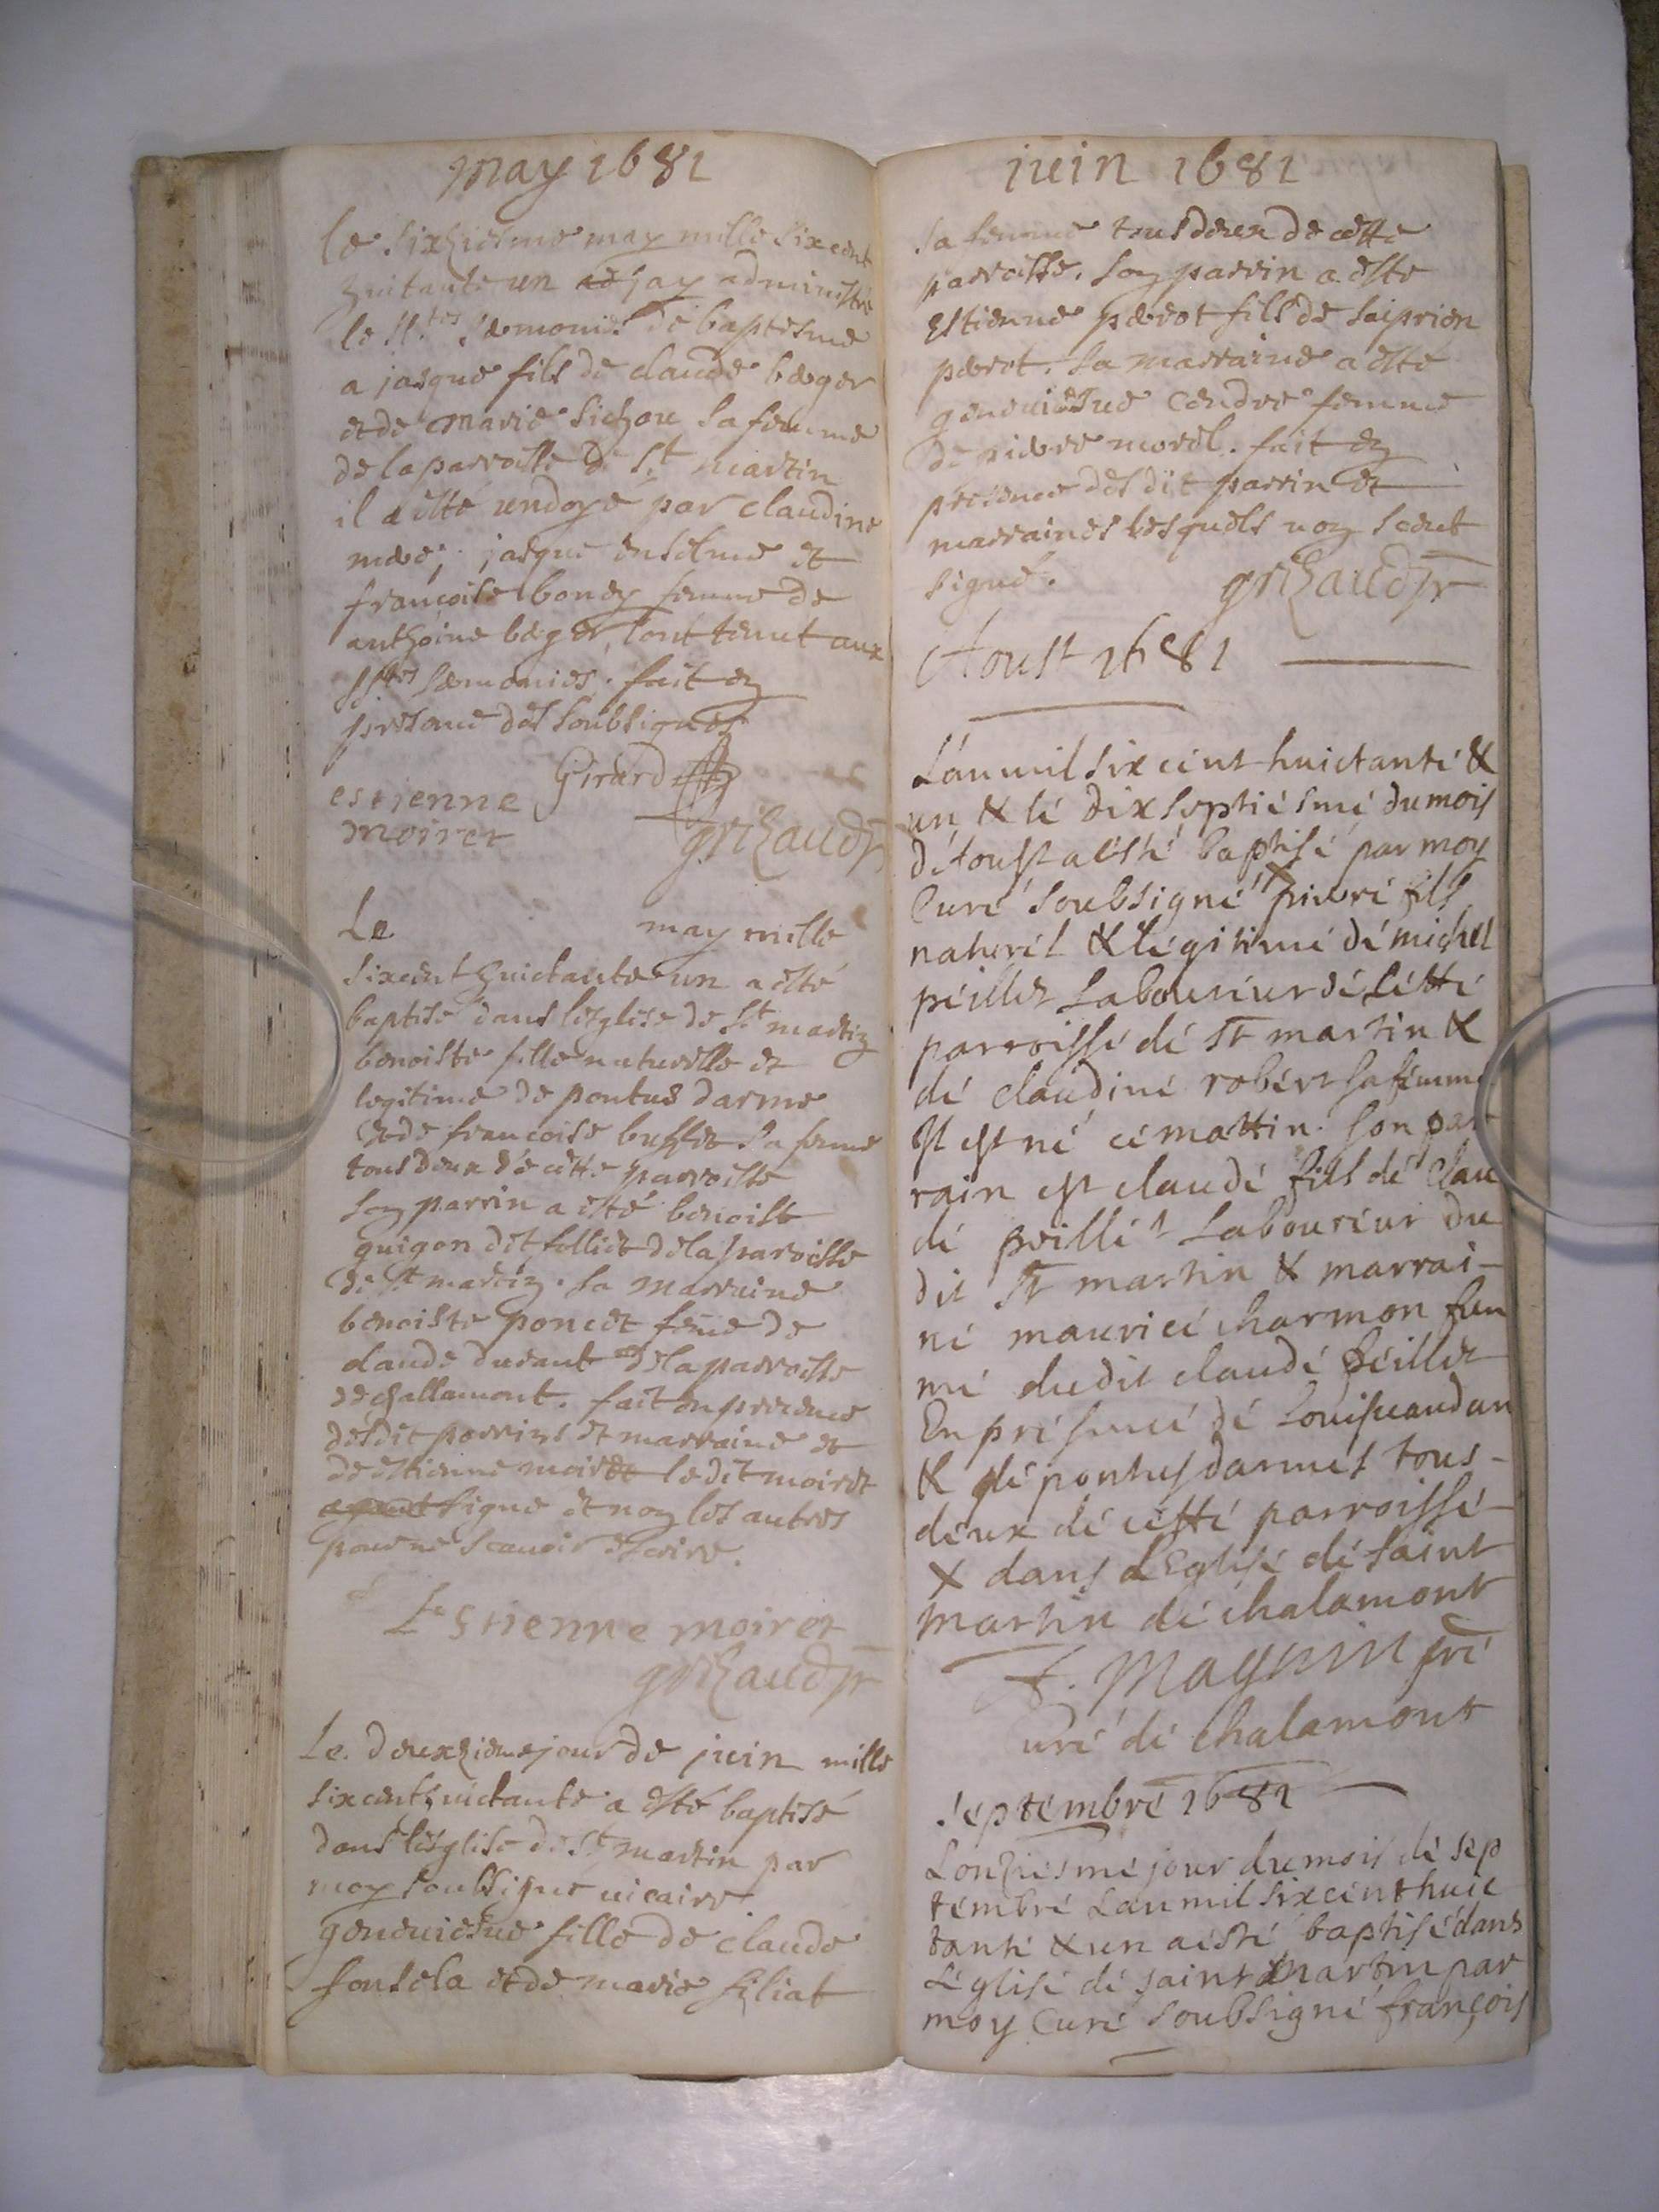 may 1681
le sixhiesme may mille six cent
huitante un ae jay administré
le stes seremonies de baptesme
a jasque fils de claude berger
et de marie sichou sa femme
de la parroisse de st martin
il a esté undoyé par claudine
mere; jasque enselme et
françoise boney femme de
anthoine berger, l'ont tenut aux
sstes seremonies. fait en
presence des soubsignes
Girard
estienne
moiret
grizaud pr
Le may mille
sixcent huictante un a esté
baptisé dans lesglise de st martin
benoiste fille naturelle et
legitime de pontus darme
et de francoise buffet sa femme
tous deux de cette parroisse
son parrin a esté benoist
guigon dit follict de la parroisse
de st martin. sa marraine
benoiste poncet feme de
claude durant de la parroisse
de challamont. fait en presence
desdit parrins et marraine et
de estienne moiret le dit moiret
ayant signe et non les autres
pour ne scauoir escrire.
Estienne moiret
grizaud pr
Le deuxhieme jour de juin mille
sixcent huictante a esté baptisé
dans lesglise de st martin par
moy soubsigne uicaire
geneuiesue fille de claude
fonsela et de marie filiat
juin 1681
sa femme tous deux de cette
parroisse. son parrin a este
estienne perrot fils de siprien
perrot. sa marraine a esté
geneuiesue cendre femme
de pierre morel. fait en
presence des dit parrin et
marraines lesquels non sceut
signé.
grizaud pr
Aoust 1681
L'an mil six cent huictante &
un & le dix septiesme du mois
d'Aoust a esté baptisé par moy
Curé soubsigné pierre fils
naturel & legitime de michel
peillet Laboureur de cette
parroisse de st martin &
de claudine robert sa femme
Il est né ce mattin. son par
rain est claude fils de Clau
de peillet Laboureur du
dit st martin & marrai-
ne maurice charmon fem
me dudit claude peillet
En presence de
& de pontus darmes tous-
deux de cette parroisse-
& dans L'Eglise de saint
martin de chalamont
F. Magnin pre
uré de chalamont
septembre 1681
L'onziesme jour du mois de sep
tembre L'an mil six cent huic
tante & un a esté baptisé dans
L'églisé de saint martin par
moy Curé soubsigné françois